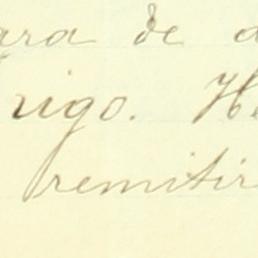 ara de a
rigo. H
remitir